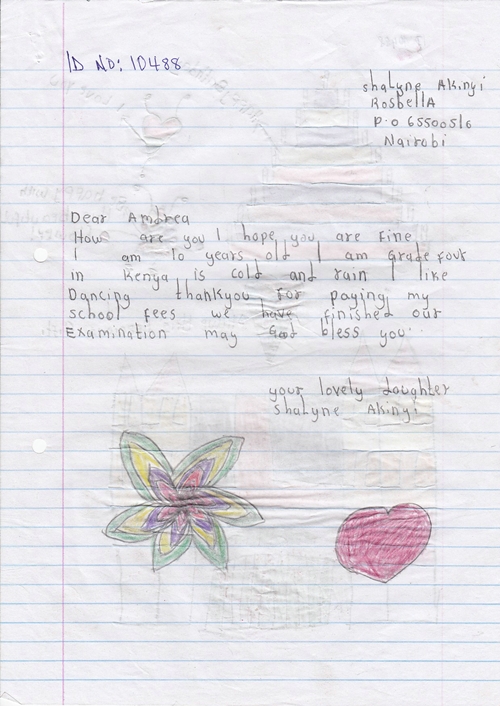 ID NO: 10488
Shalyne Akinyi
RosbellA
P.O 65500516
Nairobi
Dear Amdrea
How are you I hope you are fine
I am 10 years old I am Grade four
in Kenya is cold and rain I like
Dancing thankyou for paying my
school fees we have finished our
Examination may God bless you..
your lovely daughter
Shalyne Akinyi